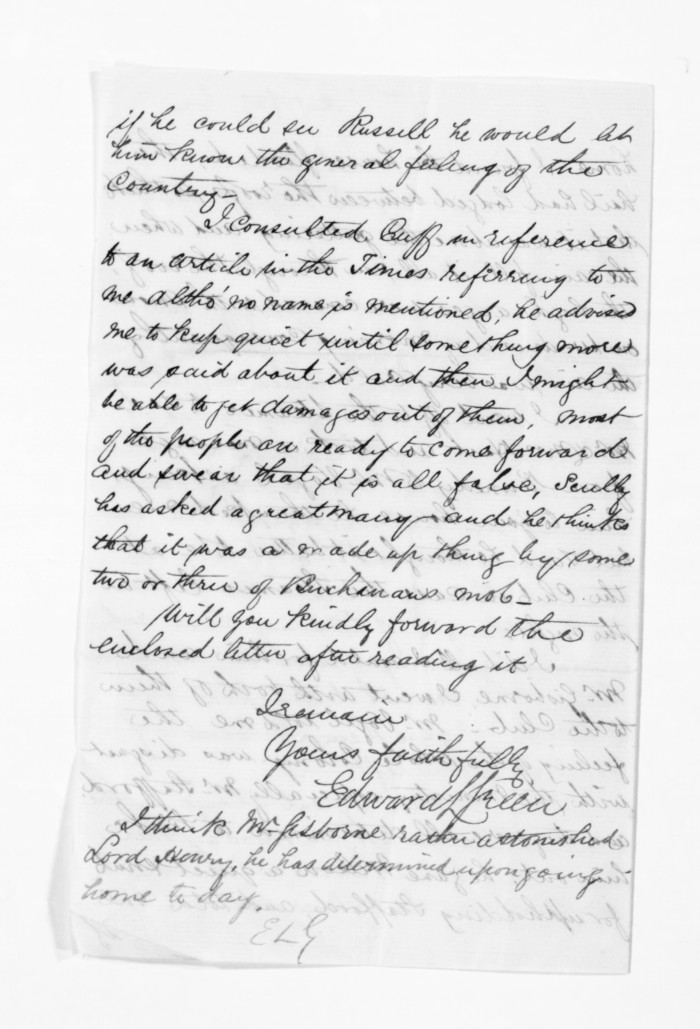 if he could see Russell he would let
him know the general feeling of the
Country—
I consulted Cuff in reference
to an article in the Times referring to
me altho' no name is mentioned, he advised
me to keep quiet until something more
was said about it and then I might
be able to get damages out of them, most
of the people are ready to come forward
and swear that it is all false, Scully
has asked a great many and he thinks
that it was a made up thing by some
two or three of Buchanans mob—
Will you kindly forward the
enclosed letter after reading it.
I remain
Yours faithfully
Edward L Green
I think Mr. Gisborne rather astonished
Lord Henry, he has determined upon going
home to day.
ELG